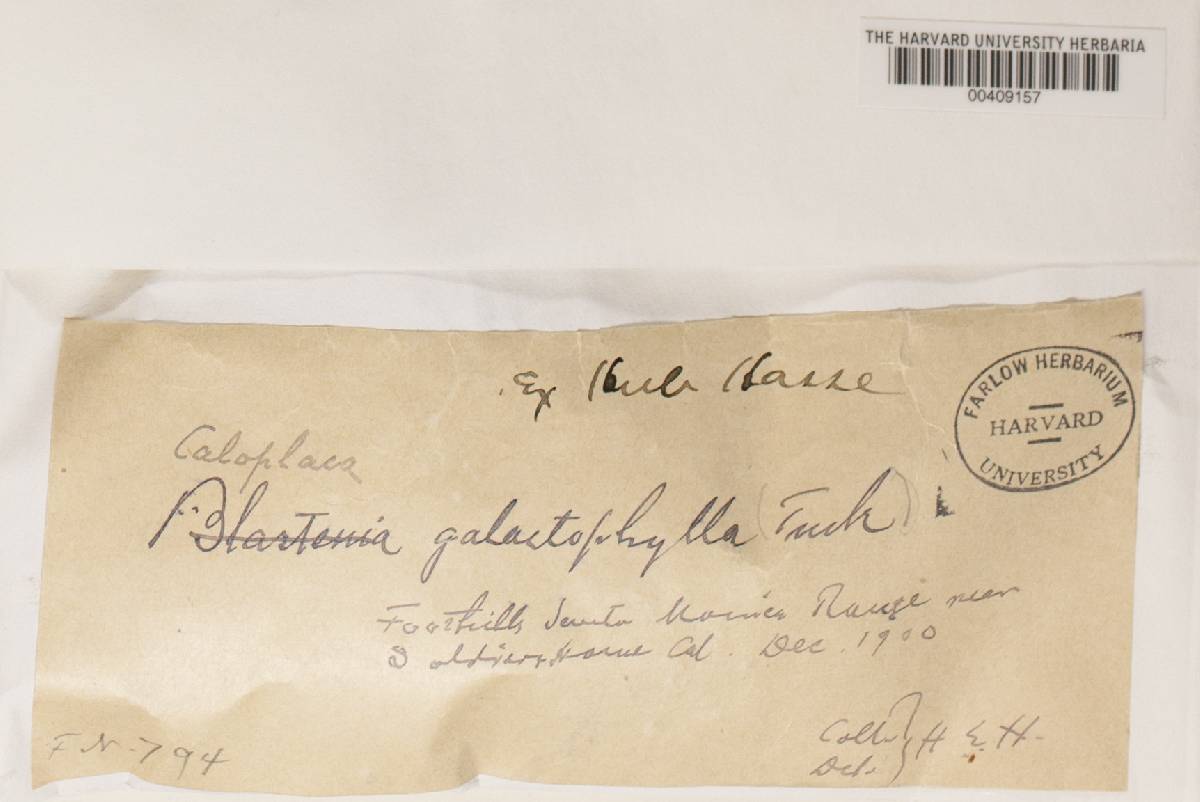 THE HARVARD UNIVERSITY HERBARIA
00409157
Ex Herb Hasse
FARLOW HERBARIUM
HARVARD
UNIVERSITY
Caloplaca
Blastenia galactophylla (Tuck)
Foothills Santa Monica Range near
Soldiers Home Cal. Dec. 1900
F N-794
Coll. } H E H-
Det.